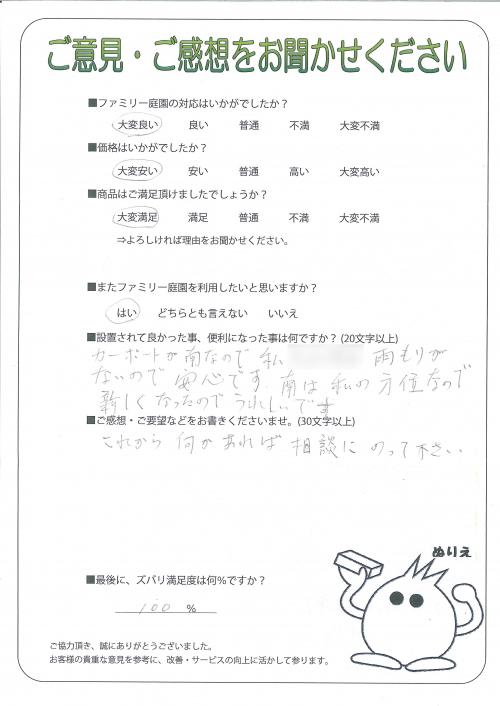 ご意見・ご感想をお聞かせください
■ファミリー庭園の対応はいかがでしたか？
大変良い 良い 普通 不満 大変不満
■価格はいかがでしたか？
大変安い 安い 普通 高い 大変高い
■商品はご満足頂けましたでしょうか？
大変満足 満足 普通 不満 大変不満
⇒よろしければ理由をお聞かせください。
■またファミリー庭園を利用したいと思いますか？
はい どちらとも言えない いいえ
■設置されて良かった事、便利になった事は何ですか？(20文字以上)
カーポートが南なので 私 雨もりが
ないので 安心です. 南は 私の 方位なので
新しくなったので うれしいです
■ご感想・ご要望などをお書きくださいませ。(30文字以上)
これから 何かあれば 相談に のって下さい
ぬりえ
■最後に、ズバリ満足度は何%ですか？
100 %
ご協力頂き、誠にありがとうございました。
お客様の貴重な意見を参考に、改善・サービスの向上に活かして参ります。